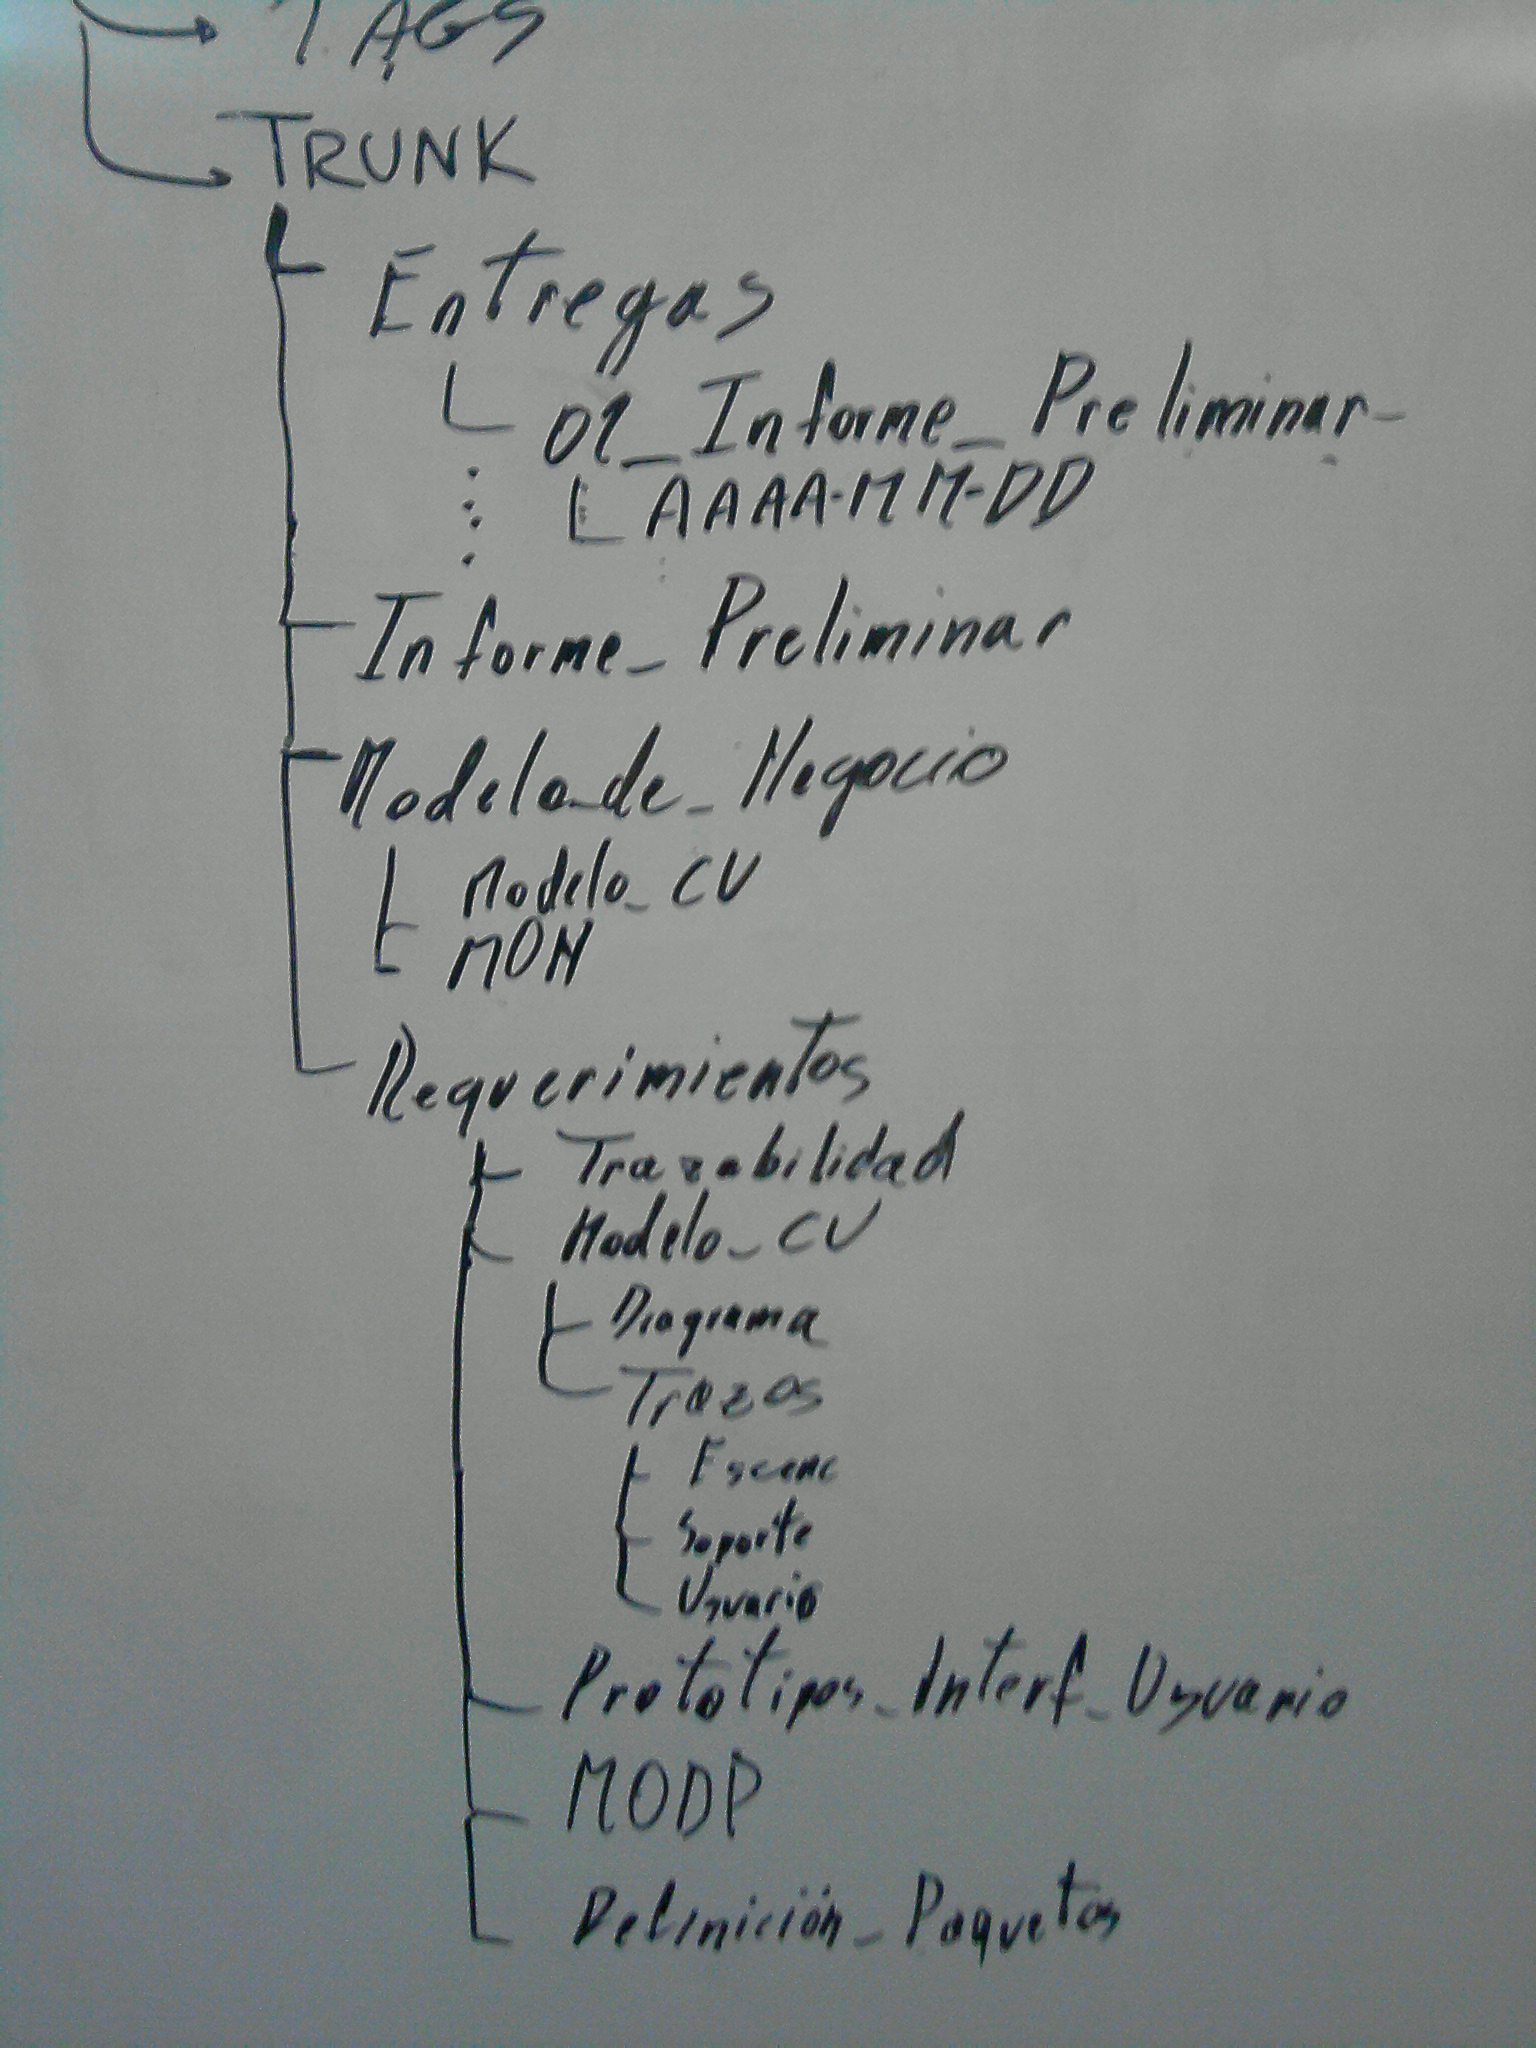 TAGS
TRUNK
Entregas
01_Informe_Preliminar-
AAAA-MM-DD
Informe_Preliminar
Modelo_de_Negocio
Modelo_CU
MON
Requerimientos
Trazabilidad
Modelo_CU
Diagrama
Trazos
Esenc
Soporte
Usuario
Prototipos_Interf_Usuario
MODP
Definición_Paquetes